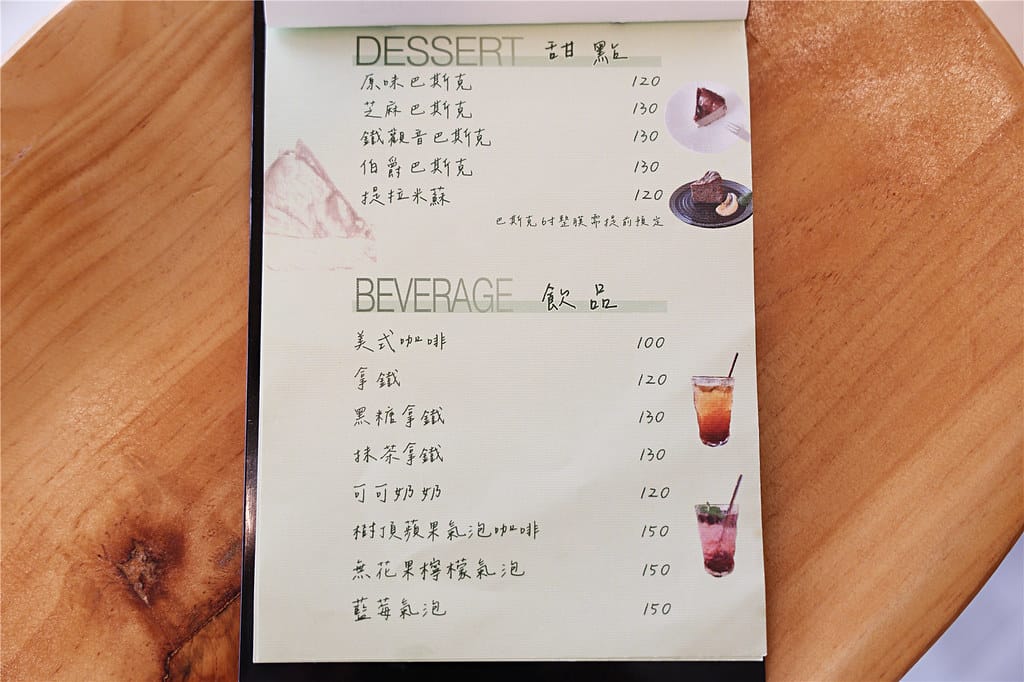 DESSERT 甜點
原味巴斯克 120
芝麻巴斯克 130
鐵觀音巴斯克 130
伯爵巴斯克 130
提拉米蘇 120
巴斯克6吋整模需提前預定
BEVERAGE 飲品
美式咖啡 100
拿鐵 120
黑糖拿鐵 130
抹茶拿鐵 130
可可奶奶 120
樹頂蘋果氣泡咖啡 150
無花果檸檬氣泡 150
藍莓氣泡 150